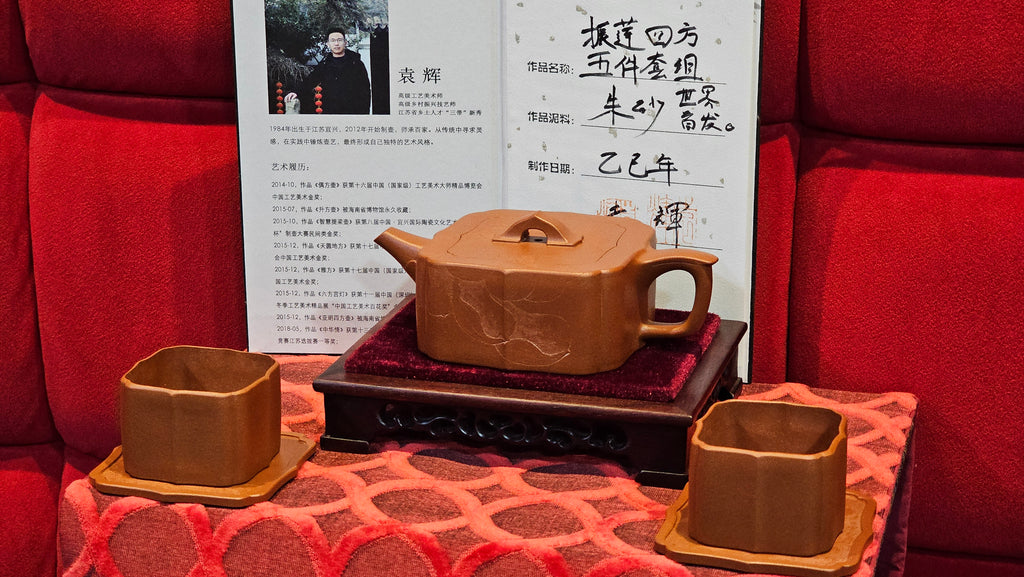 袁辉
高级工艺美术师
高级乡村振兴技艺师
江苏省乡土人才“三带”新秀
1984年出生于江苏宜兴，2012年开始制壶，师承百家。从传统中寻求灵
感，在实践中锤炼壶艺，最终形成自己独特的艺术风格。
艺术履历：
2014-10，作品《偶方壶》获第十六届中国（国家级）工艺美术大师精品博览会
中国工艺美术金奖；
2015-07，作品《升方壶》被海南省博物馆永久收藏；
2015-10，作品《智慧提梁壶》获第八届中国·宜兴国际陶瓷文化艺术
杯”制壶大赛民间类金奖；
2015-12，作品《天圆地方》获第十七届
会中国工艺美术金奖；
2015-12，作品《雅方》获第十七届中国（国家级
国工艺美术金奖；
2015-12，作品《六方宫灯》获第十一届中国（深圳
冬季工艺美术精品展“中国工艺美术百花奖”
2015-12，作品《亚明四方壶》被海南省
2018-05，作品《中华情》获第十三
竞赛江苏选拔赛一等奖；
作品名称：振莲四方
五件套组
作品泥料：朱砂 世界
首发。
制作日期：乙巳年
輝